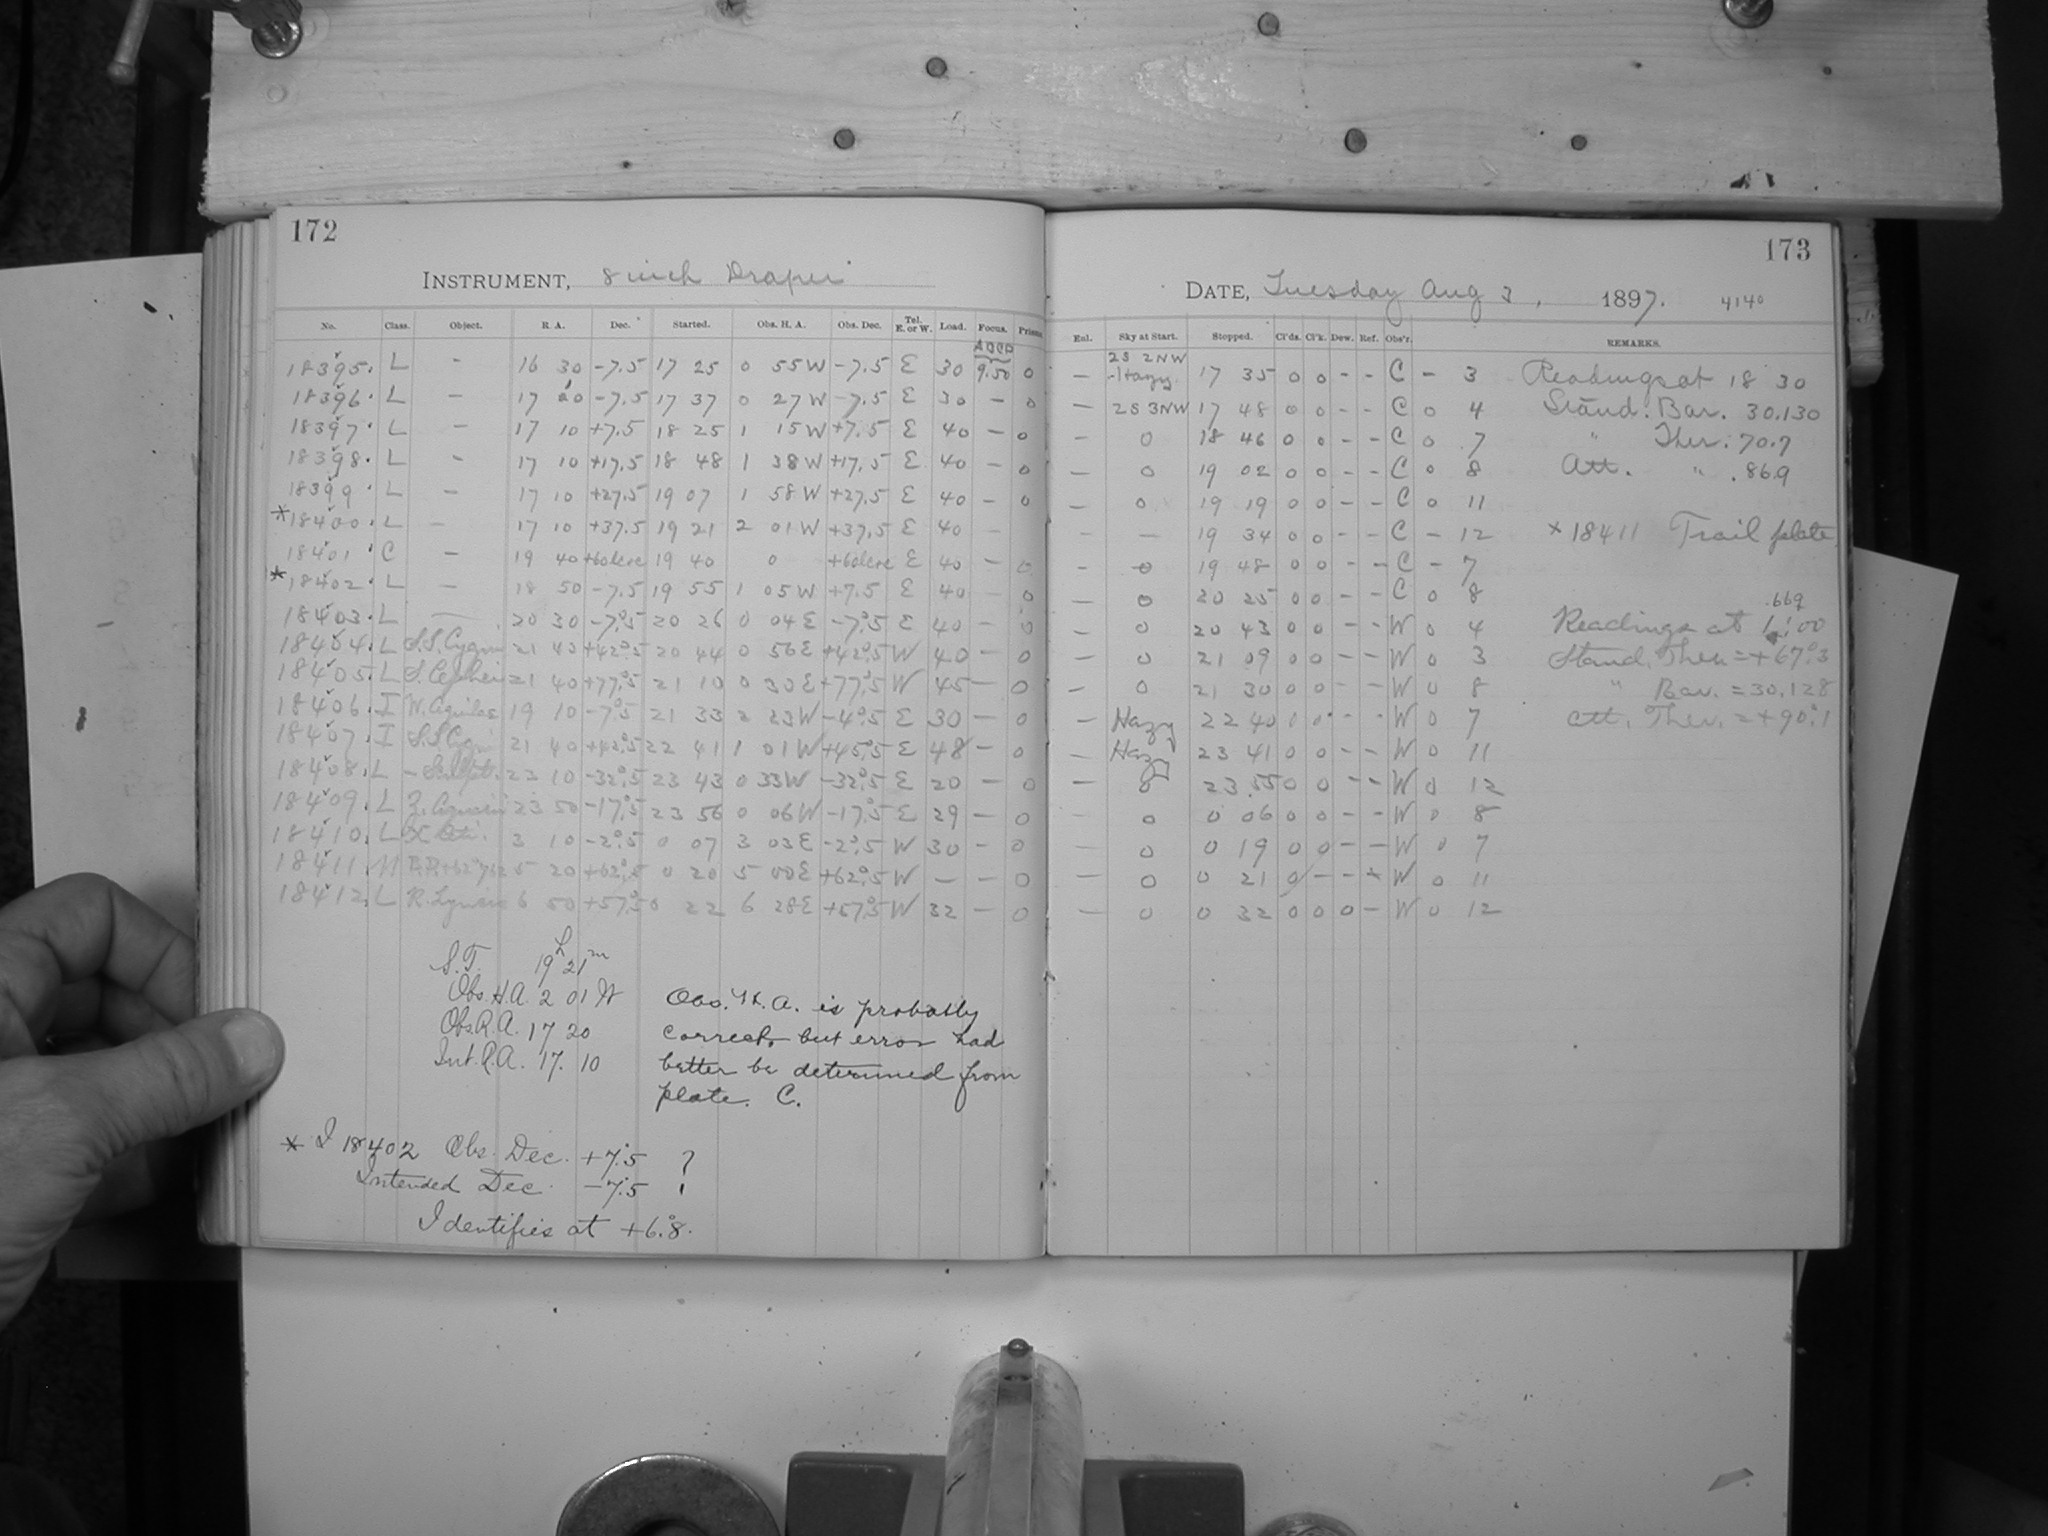 172
INSTRUMENT, 8 inch Draper
No. Class. Object. R. A. Dec. Started. Obs. H. A. Obs. Dec. Tel. E. or W. Load. Focus. Prism
18395. L - 16 30 -7.5 17 25 0 55W -7.5 E 30 9.50 0
18396. L - 17 -7.5 17 37 0 27W -7.5 E 30 - 0
18397. L - 17 10 +7.5 18 25 1 15W +7.5 E 40 - 0
18398. L - 17 10 +17.5 18 48 1 38W +17.5 E 40 - 0
18399. L - 17 10 +27.5 19 07 1 58W +27.5 E 40 - 0
*18400. L - 17 10 +37.5 19 21 2 01W +37.5 E 40 -
18401 C - 19 40 19 40 0 E 40 - 0
*18402. L - 18 50 -7.5 19 55 1 05W +7.5 E 40 - 0
18403. L - 20 30 -7°.5 20 26 0 04E -7°.5 E 40 - 0
18404. L S.S. Cygni 21 40 +42°.5 20 44 0 56E +42°.5 W 40 - 0
18405. L S. Cephei 21 40 +77°.5 21 10 0 30E +77°.5 W 45 - 0
18406. I W. Aquilae 19 10 -7°.5 21 33 2 23W -4°.5 E 30 - 0
18407. I S.S. Cygni 21 40 +42°.5 22 41 1 01W +45°.5 E 48 - 0
18408. L - Sculpt. 23 10 -32°.5 23 43 0 33W -32°.5 E 20 - 0
18409. L Z. Aquarii 23 50 -17°.5 23 56 0 06W -17°.5 E 29 - 0
18410. L 3 10 -2°.5 0 07 3 03E -2°.5 W 30 - 0
18411. 5 20 +62°.5 0 20 5 00E +62°.5 W - - 0
18412. L R. Lyncis 6 50 +57°.5 0 22 6 28E +57°.5 W 32 - 0
S.T. 19h 21m
Obs. H.A. 2 01 W
Obs. R.A. 17 20
Int. R.A. 17. 10
Obs. H. A. is probably
correct, but error had
better be determined from
plate. C.
* I 18402 Obs. Dec. +7°.5 ?
Intended Dec. -7°.5 !
Identifies at +6°.8.
173
DATE, Tuesday Aug 3, 1897. 4140
Enl. Sky at Start. Stopped. Cl'ds. Cl'k. Dew. Ref. Obs'r. REMARKS.
- 2S 2NW Hazy. 17 35 0 0 - - C - 3 Readings at 18 30
- 2S 3NW 17 48 0 0 - - C 0 4 Stand. Bar. 30.130
- 0 18 46 0 0 - - C 0 7 " Ther. 70.7
- 0 19 02 0 0 - - C 0 8 Att. " .869
- 0 19 19 0 0 - - C 0 11
- - 19 34 0 0 - - C - 12 × 18411 Trail plate
- 0 19 48 0 0 - - C - 7
- 0 20 25 0 0 - - C 0 8 .669
- 0 20 43 0 0 - - W 0 4 Readings at 1:00
- 0 21 09 0 0 - - W 0 3 Stand. Ther. = +67°.3
- 0 21 30 0 0 - - W 0 8 " Bar. = 30.128
- Hazy 22 40 0 0 - - W 0 7 Att. Ther. = +90°.1
- Hazy 23 41 0 0 - - W 0 11
- 0 23 55 0 0 - - W 0 12
- 0 0 06 0 0 - - W 0 8
- 0 0 19 0 0 - - W 0 7
- 0 0 21 0 - - - W 0 11
- 0 0 32 0 0 0 - W 0 12